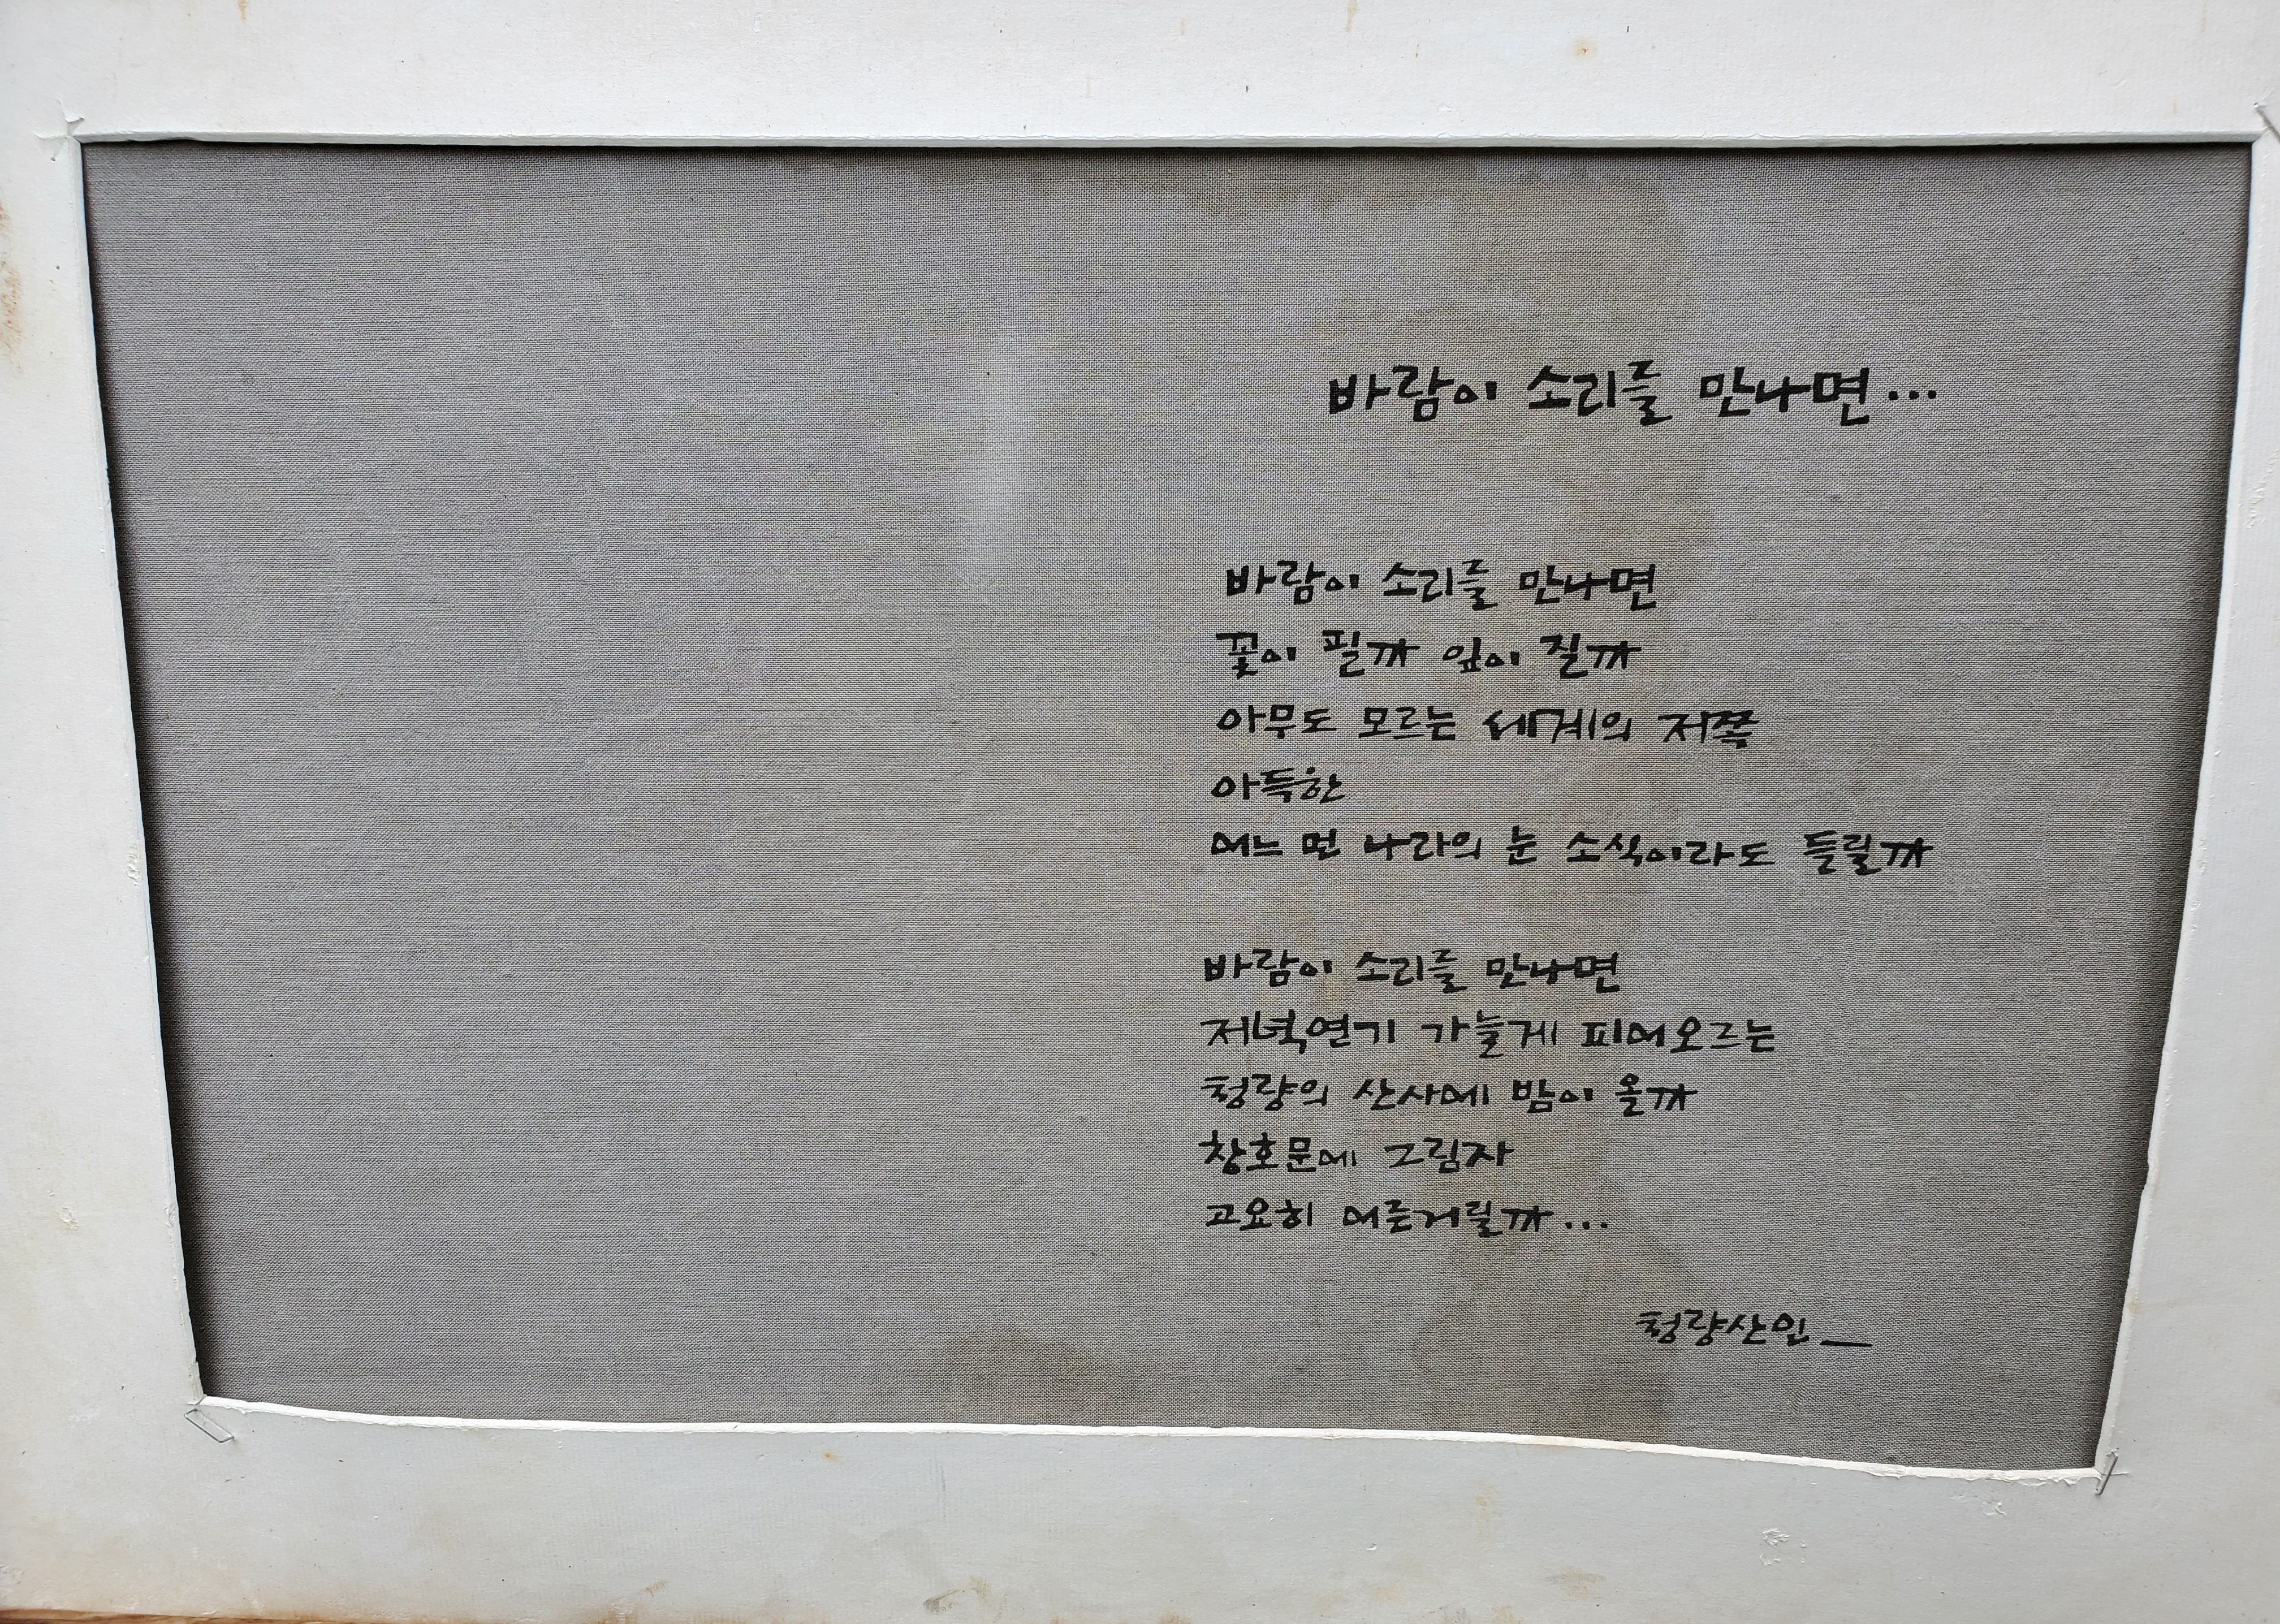 바람이 소리를 만나면...
바람이 소리를 만나면
꽃이 필까 잎이 질까
아무도 모르는 세계의 저쪽
아득한
어느 먼 나라의 눈 소식이라도 들릴까
바람이 소리를 만나면
저녁연기 가늘게 피어오르는
청량의 산사에 밤이 올까
창호문에 그림자
고요히 어른거릴까...
청량산인